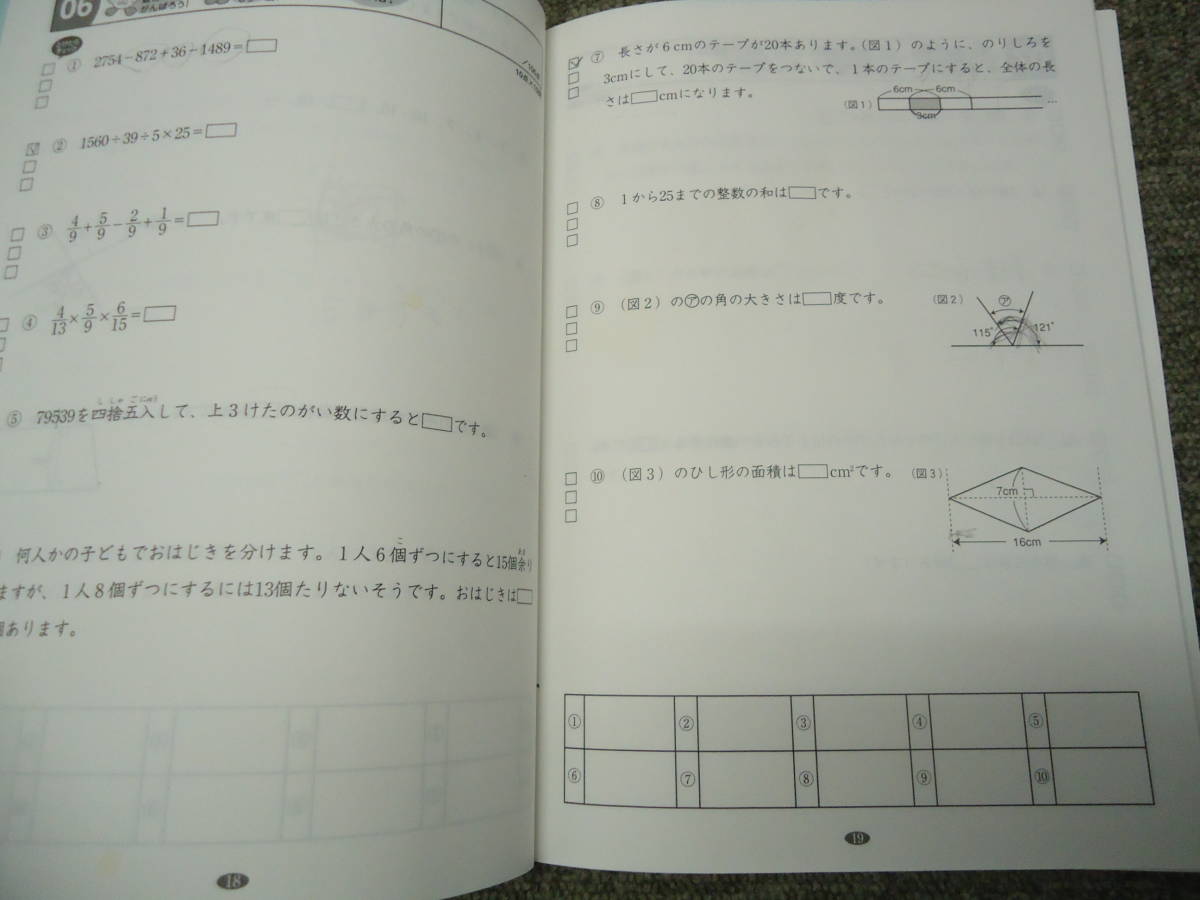 06
がんばろう!
① 2754−872+36−1489=□
② 1560÷39÷5×25=□
③ 4/9+5/9−2/9+1/9=□
④ 4/13×5/9×6/15=□
し しゃ ご にゅう
⑤ 79539を四捨五入して、上3けたのがい数にすると□です。
こ あま
何人かの子どもでおはじきを分けます。1人6個ずつにすると15個余り
ますが、1人8個ずつにするには13個たりないそうです。おはじきは□
個あります。
18
⑦ 長さが6cmのテープが20本あります。(図1)のように、のりしろを
3cmにして、20本のテープをつないで、1本のテープにすると、全体の長
さは□cmになります。
(図1) 6cm 6cm 3cm …
⑧ 1から25までの整数の和は□です。
⑨ (図2)の㋐の角の大きさは□度です。
(図2) ㋐ 115° 121°
⑩ (図3)のひし形の面積は□cm²です。
(図3) 7cm 16cm
① ② ③ ④ ⑤
⑥ ⑦ ⑧ ⑨ ⑩
19